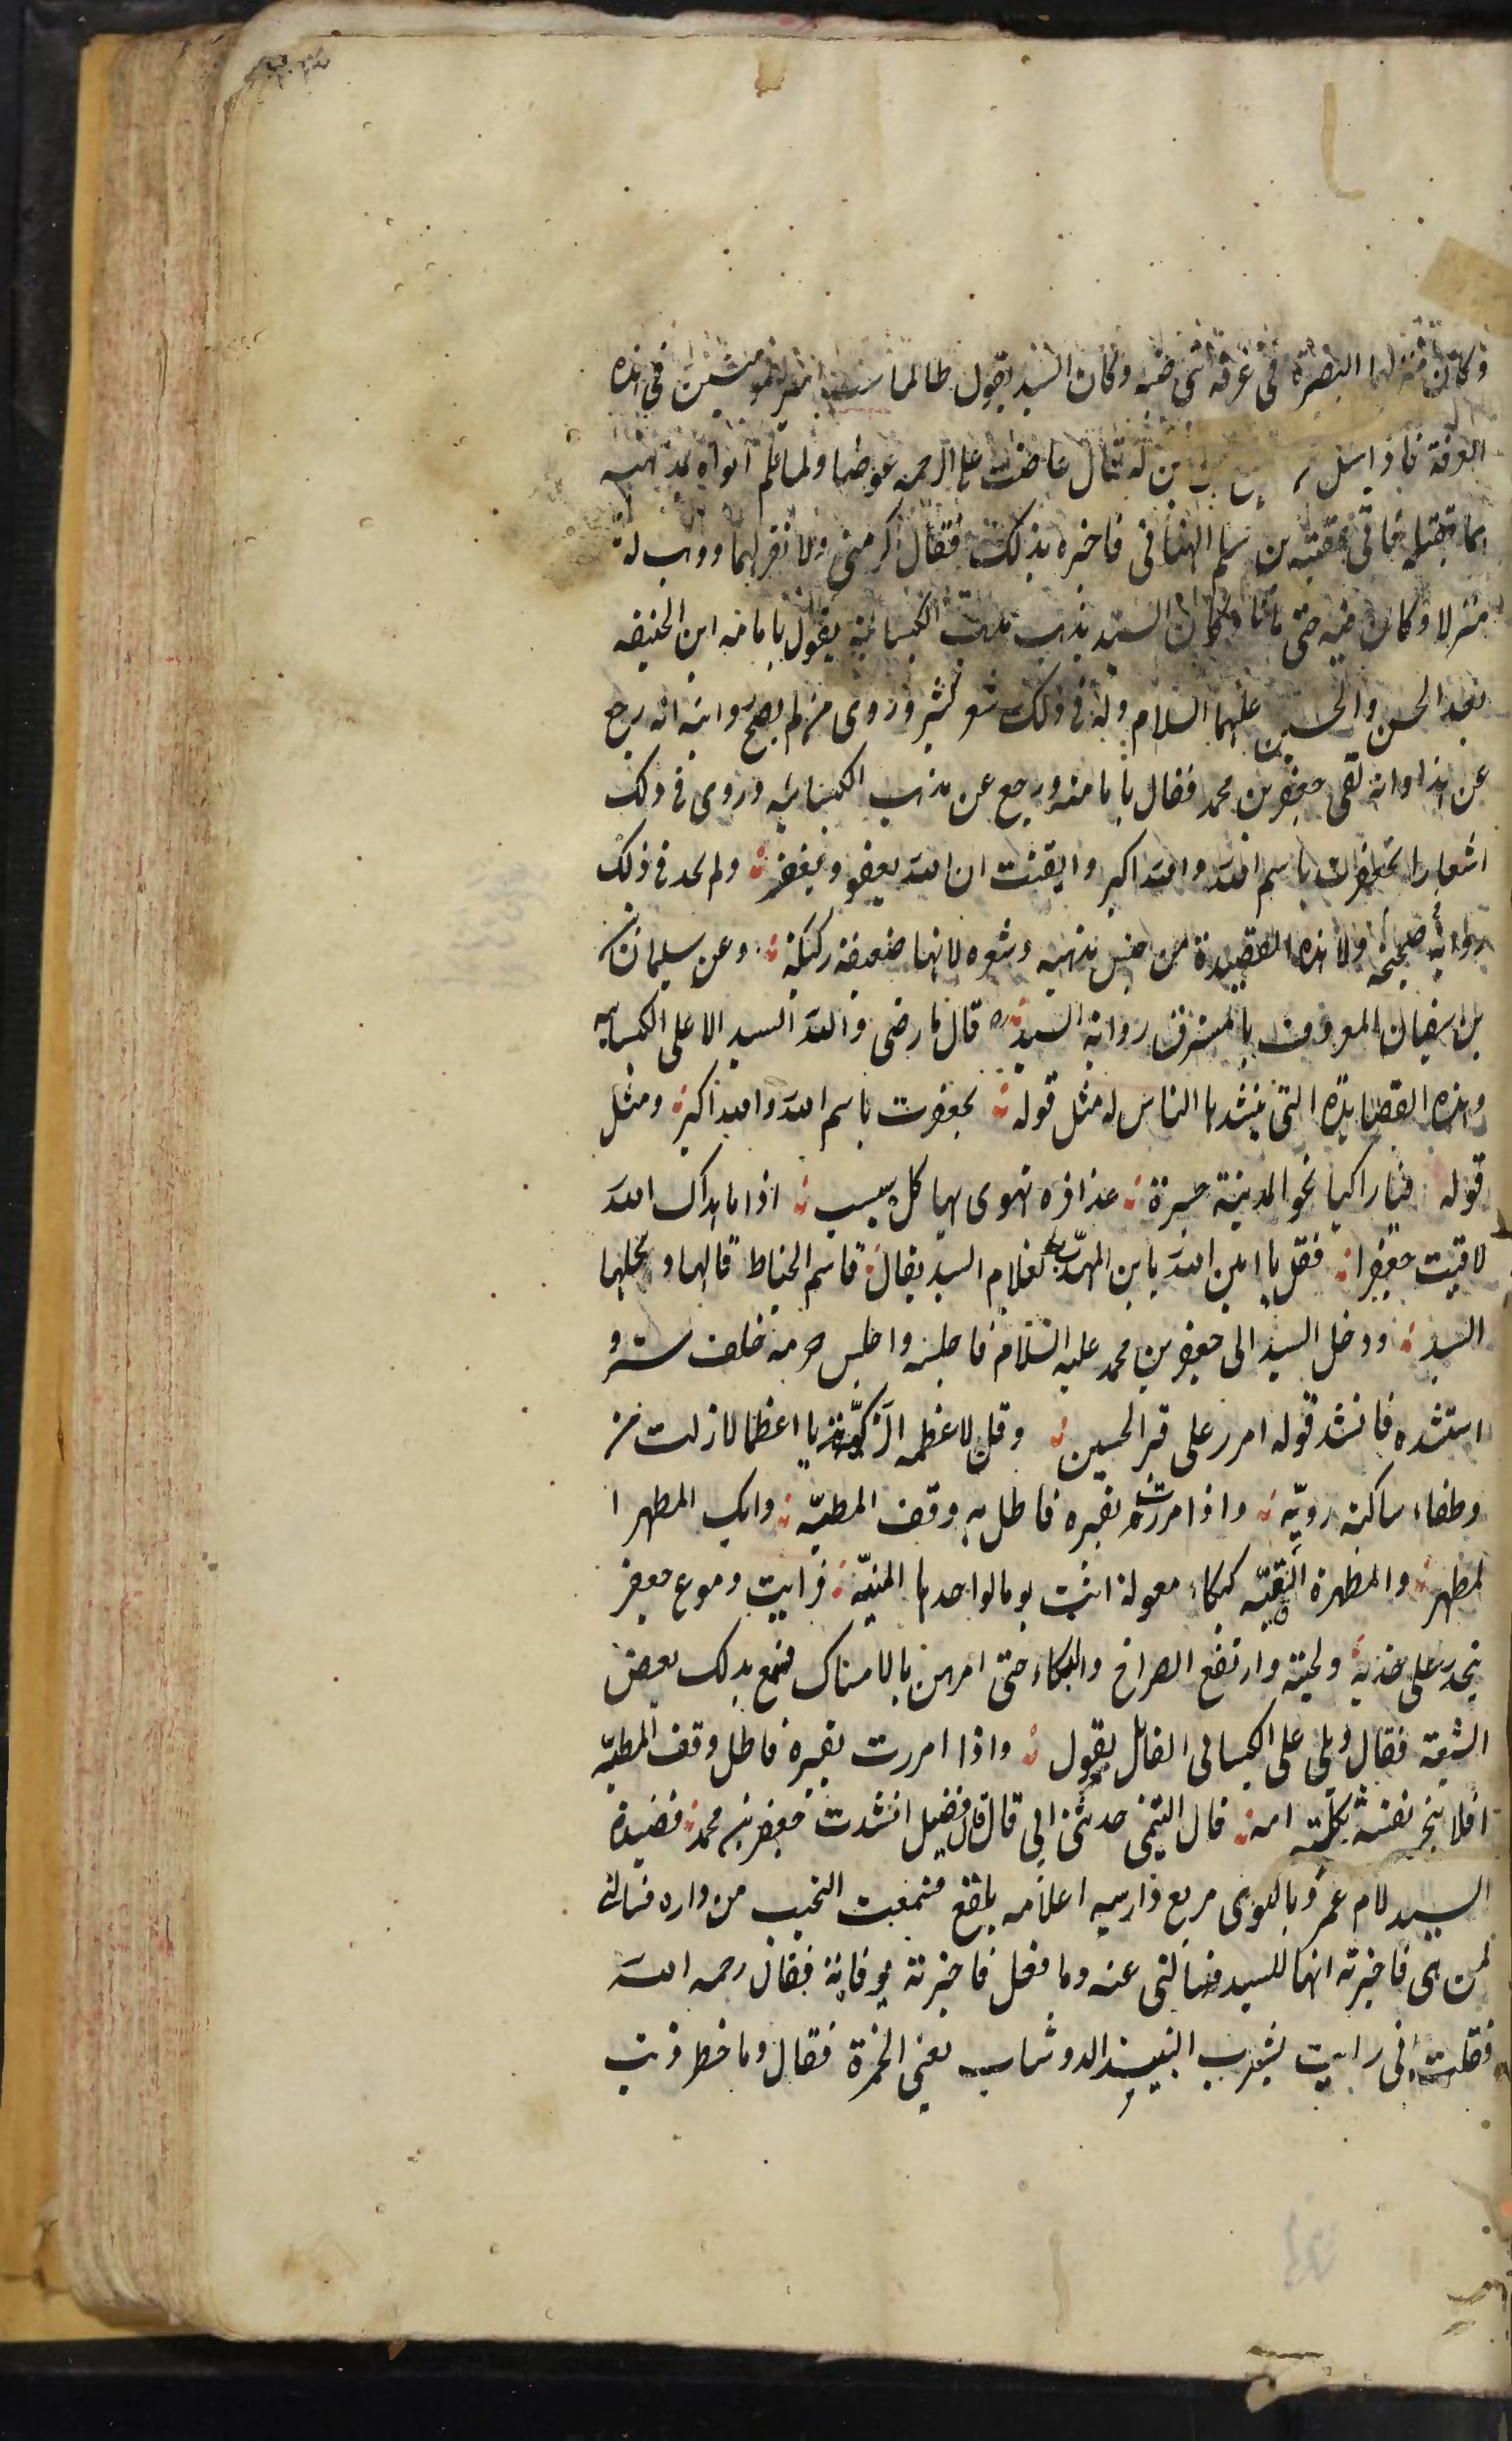 وكان منزلهما البصرة في غرفة بني ضبه وكان السيد يقول طالما سب امير المومنين في هذه
الغرفة فاذا سئل عن له فقال غاصت على الرحمه غوصا ولما علم ابواه بمذهبه
هما بقتله فاتى عقبه بن سلم الهنائى فاخبره بذلك فقال اكرمنى ولا تقربهما ووهب له
منزلا وكان فيه حتى ماتا وكان السيد يذهب مذهب الكيسانية يقول بامامه ابن الحنيفه
بعد الحسن والحسين عليهما السلام وله في ذلك شعر كثير وروى من لم يصح روايته انه رجع
عن هذا وانه لقى جعفر بن محمد فقال بامامته ورجع عن مذهب الكيسانيه وروى فى ذلك
اشعارا تجعفرت باسم الله والله اكبر وايقنت ان الله يعفو ويغفر ولم نجد في ذلك
رواية صحيحه ولا هذه القصيدة من جنس مذهبه وشعره لانها ضعيفة ركيكة وعن سليمان
بن سفيان المعروف بالمسترق رواية السيد ره قال ما مضى والله السيد الا على الكيسانيه
وهذه القصايده التى ينشدها الناس له مثل قوله تجعفرت باسم الله والله اكبر ومثل
قوله فيا راكبا نحو المدينة جسرة عذافره تهوى بها كل سبسب اذا ما هداك الله
لاقيت جعفرا فقل يا امين الله يا بن المهذب لغلام السيد يقال قاسم الخياط قالها ونحلها
السيد ودخل السيد الى جعفر بن محمد عليه السلام فاجلسه واجلس حرمه خلف ستر و
استنشده فانشد قوله امرر على قبر الحسين وقل لاعظمه الزكيّة يا اعظما لا زلت من
وطفاء ساكبة رويّه واذا مررت بقبره فاطل به وقف المطيّه وابك المطهر ا
لمطهر والمطهرة النقيّه كبكاء معولة اتت يوما لواحدها المنيّه فرايت دموع جعفر
ينحدر على خديه ولحيته وارتفع الصراخ والبكاء حتى امرهن بالامساك فسمع بذلك بعض
الشيعة فقال ويلى على الكيسانى القائل يقول واذا مررت بقبره فاطل وقف المطيّه
افلا ينحر نفسه ثكلته امه قال التيمى حدثنى ابى قال قال فضيل انشدت جعفر بن محمد قصيدة
السيد لام عمرو باللوى مربع دارسه اعلامه بلقع فسمعت النحيب من داره فسالنى
لمن هى فاخبرته انها للسيد فسالنى عنه وما فعل فاخبرته بوفاته فقال رحمه الله
فقلت انى رايت يشرب النبيذ الدوشاب يعنى الخمرة فقال وما خطر ذنب